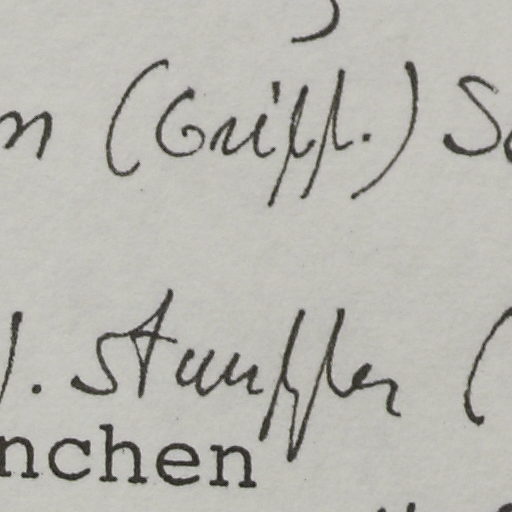 n (Griff.) S
). Stauffer (
nchen